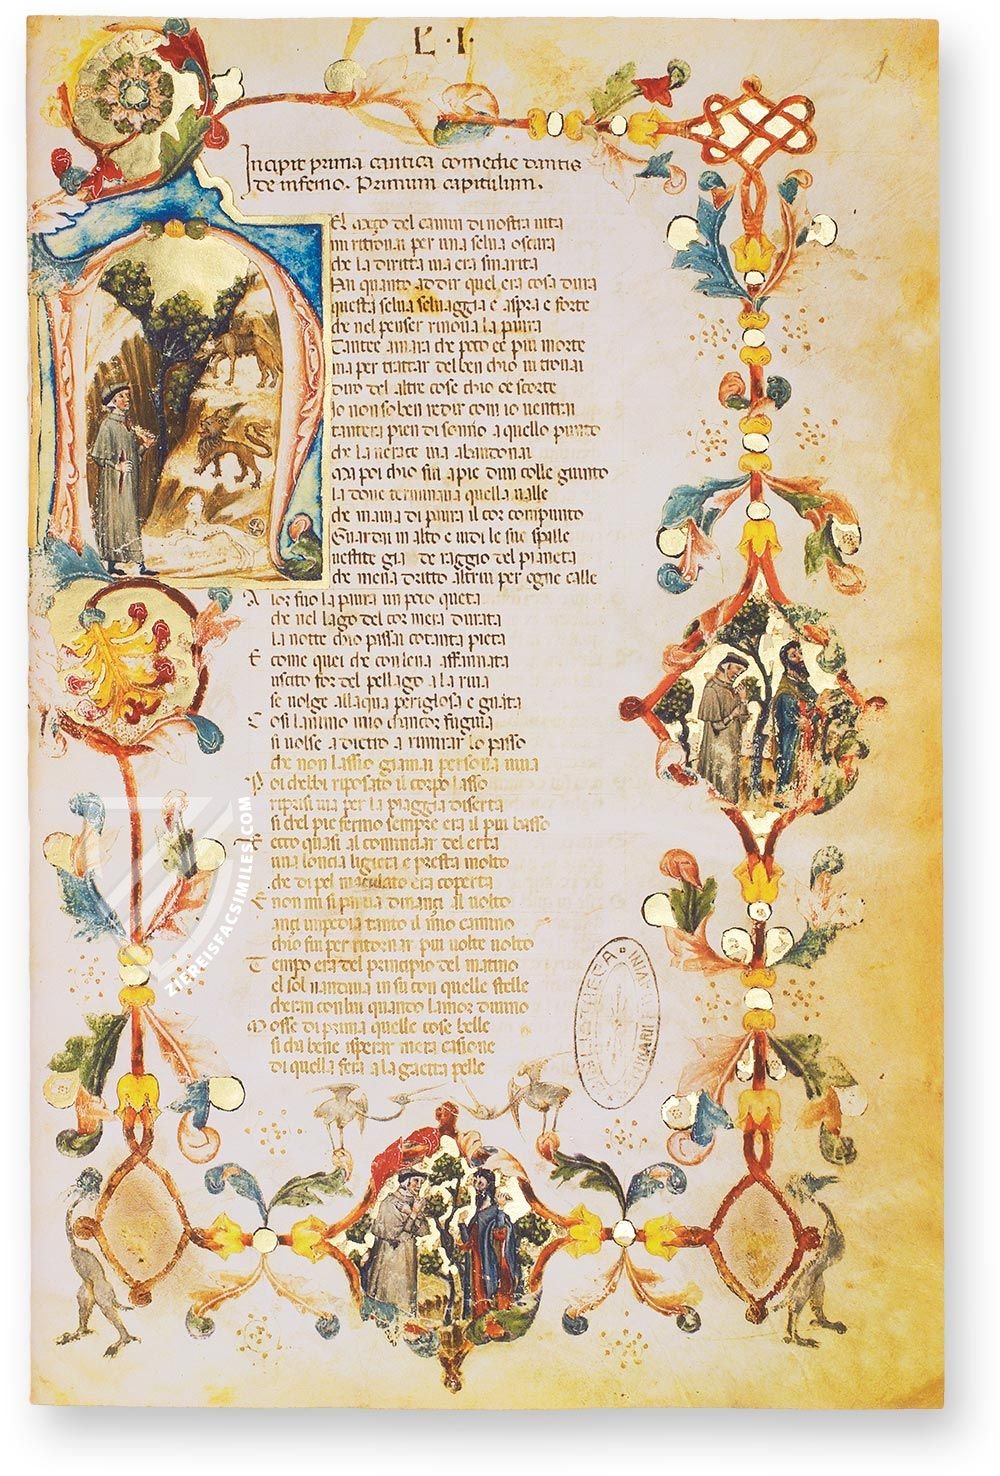 L · I ·
1
Incipit prima cantica comedie dantis
de inferno. Primum capitulum.
NEl meço del camin di nostra uita
mi ritrouai per una selua oscura
che la diritta uia era smarita
Ahi quanto a dir quel era cosa dura
questa selua seluaggia e aspra e forte
che nel penser rinoua la paura
Tante amara che poco e piu morte
ma per trattar del ben chio ui trouai
diro del altre cose chio ce scorte
Io non so ben redir com io uentrai
tantera pien di sonno a quello punto
che la uerace uia abandonai
Ma poi chio fui a pie dun colle giunto
la doue terminaua quella ualle
che mauia di paura il cor compunto
Guardai in alto e uidi le sue spalle
uestite gia de raggio del pianeta
che mena dritto altrui per ogne calle
Alor fu la paura un poco queta
che nel lago del cor mera durata
la notte chio passai cotanta pieta
E come quei che con lena affannata
uscito for del pellago a la riua
se uolge allaqua perigliosa e guata
Cosi lanimo mio chancor fuguia
si uolse a dietro a rimirar lo passo
che non lassio giamai persona uiua
Poi chebbi riposato il corpo lasso
ripresi uia per la piaggia diserta
si chel pie fermo sempre era il piu basso
Et ecco quasi al cominciar del erta
una loncia ligiera e presta molto
che di pel maculato era coperta
E non mi si partia dinanci il uolto
anci impedia tanto il mio camino
chio fui per ritornar piu uolte uolto
Tempo era del principio del matino
el sol montaua in su con quelle stelle
cheran con lui quando lamor diuino
Mosse di prima quelle cose belle
si cha bene sperar mera casione
di quella fera a la gaetta pelle
BIBLIOTHECA
ZIEREISFACSIMILES.COM